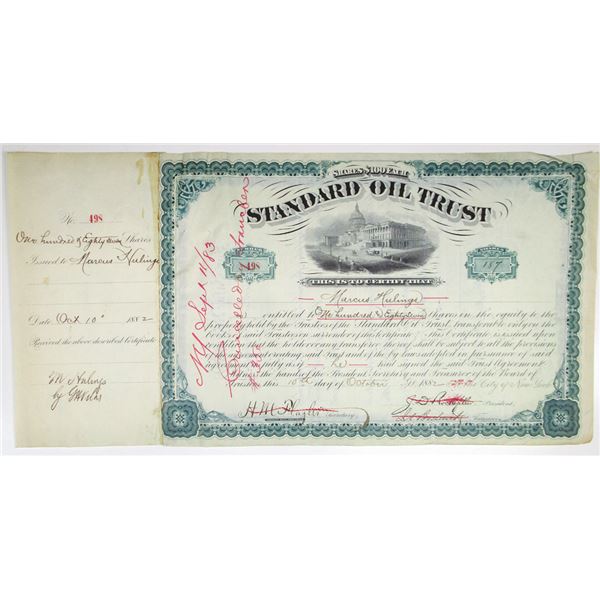 No. 498
One hundred & Eighty seven Shares
Issued to Marcus Hulings
Date Oct 10" 1882
Received the above described Certificate
M Hulings
by
SHARES $100 EACH
STANDARD OIL TRUST
498
187
THIS IS TO CERTIFY THAT
Marcus Hulings
entitled to One hundred & Eighty seven Shares in the equity to the
property held by the Trustees of the Standard Oil Trust, transferable only on the
books of said Trustees on surrender of this Certificate. This Certificate is issued upon
condition that the holder or any transferee thereof shall be subject to all the provisions
of the agreement creating said Trust and of the by laws adopted in pursuance of said
agreement as fully as if he had signed the said Trust Agreement
Witness the hands of the President Secretary and Treasurer of the Board of
Trustees this 10th day of October 1882 City of New York
H M Flagler Secretary
President
Treasurer
NY Sept 11/83
Cancelled by transfer